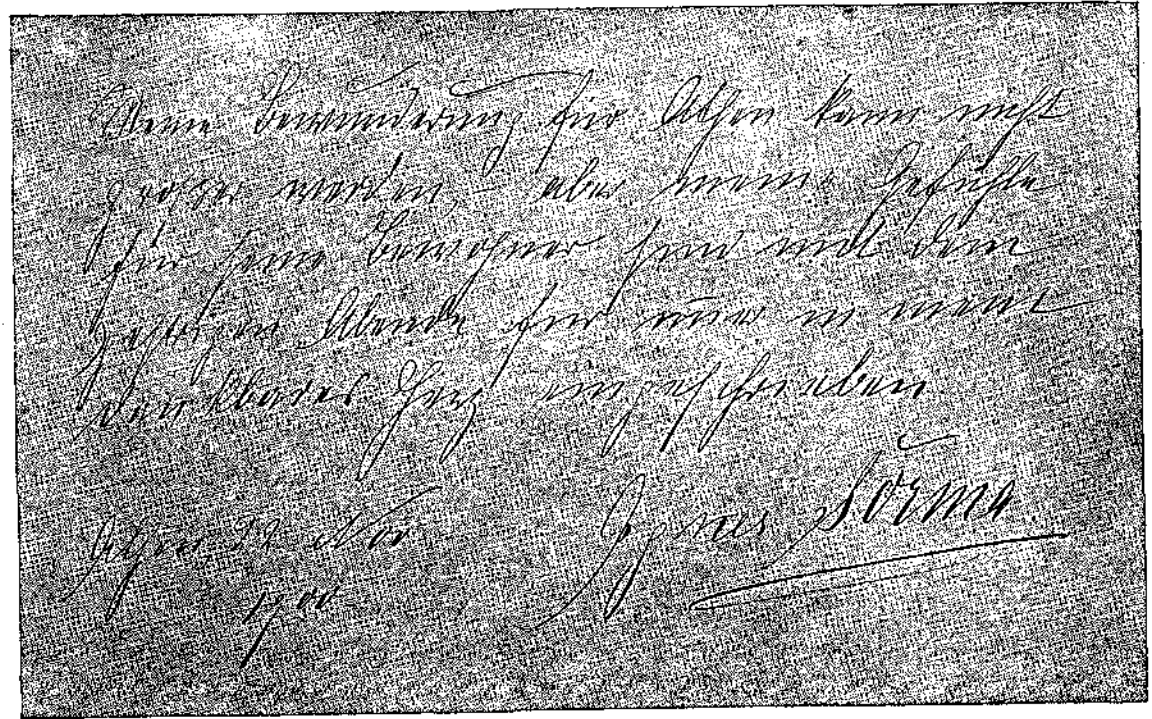 Meine Bewunderung für Athen kann nicht
grösser werden – aber meine Gefühle
für seine Bewohner sind seit dem
gestrigen Abende für immer in mein
dankbares Herz eingeschrieben
Athen 22 Nov
1900
Agnes Sorma